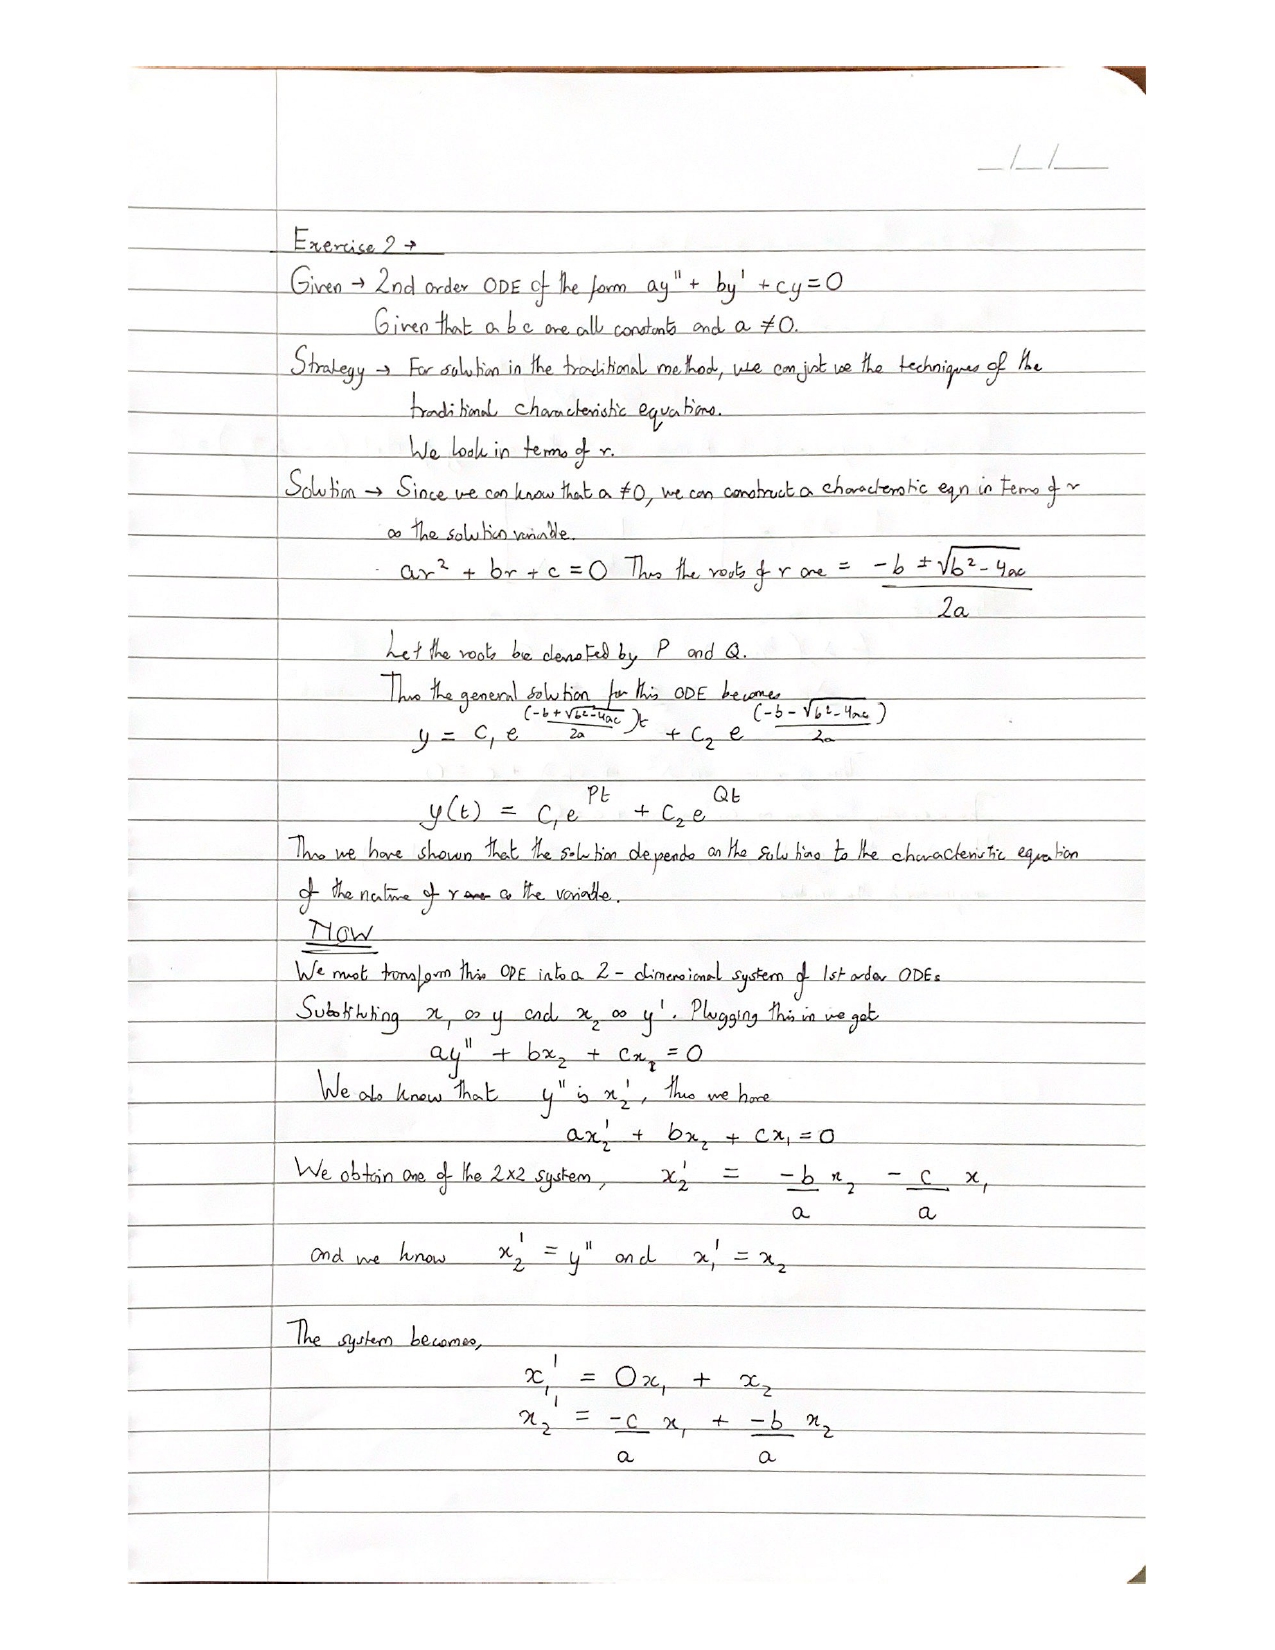 _/_/__
Exercise 2 →
Given → 2nd order ODE of the form ay'' + by' + cy = 0
Given that a b c are all constants and a ≠ 0.
Strategy → For solution in the traditional method, we can just use the techniques of the
traditional characteristic equations.
We look in terms of r.
Solution → Since we can know that a ≠ 0, we can construct a characteristic eqn in terms of r
as the solution variable.
ar² + br + c = 0 Thus the roots of r are = (-b ± √(b² - 4ac))/2a
Let the roots be denoted by P and Q.
Thus the general solution for this ODE becomes
y = C₁ e^((-b + √(b² - 4ac))/2a)t + C₂ e^((-b - √(b² - 4ac))/2a)
y(t) = C₁e^Pt + C₂e^Qt
Thus we have shown that the solution depends on the solutions to the characteristic equation
of the nature of r as the variable.
NOW
We must transform this ODE into a 2 - dimensional system of 1st order ODEs
Substituting x₁ as y and x₂ as y'. Plugging this in we get
ay'' + bx₂ + cx₁ = 0
We also know that y'' is x₂', thus we have
ax₂' + bx₂ + cx₁ = 0
We obtain one of the 2x2 system, x₂' = -b/a x₂ - c/a x₁
and we know x₂' = y'' and x₁' = x₂
The system becomes,
x₁' = 0x₁ + x₂
x₂' = -c/a x₁ + -b/a x₂